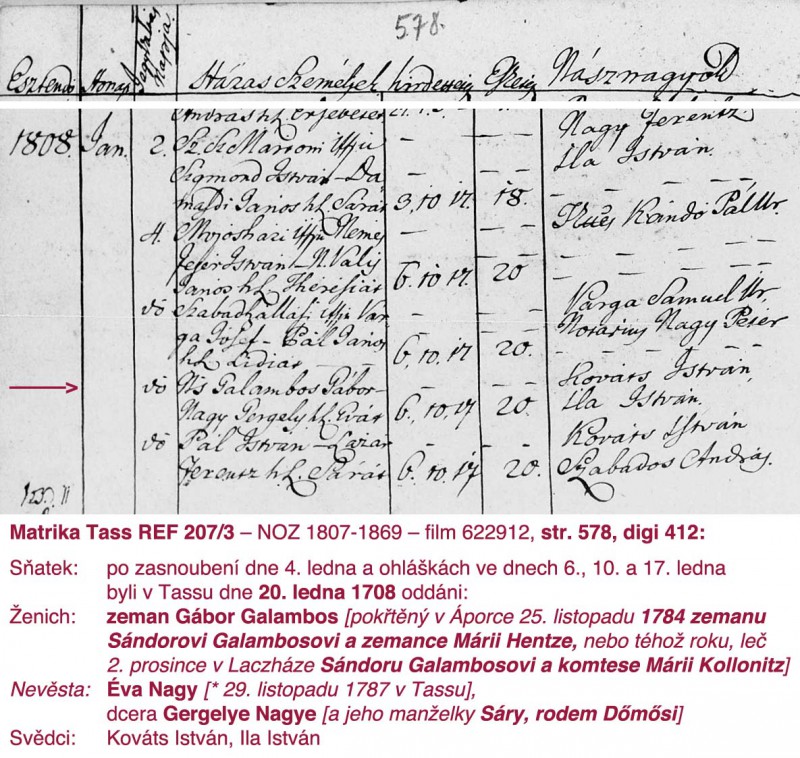 578.
Esztendő Honap Házas Személyek hirdetések Esketés Násznagyok
András hl. Ersébetet
1808. Jan. 2. Sz. Sz. Mártoni Iffjú — — Nagy Ferentz
Sigmond István – Da- — — Ila István.
masdi Janos hl. Sárát 3. 10. 17. 18.
4. — — Kándó Pál Ur.
Fejér István – N. — —
Janos hl. Theresiát 6. 10. 17. 20
dó Szabadszállási Iffjú Var- — — Varga Samuel Ur.
ga Josef – Pál Janos — — Notarius Nagy Péter
hl. Lidiát – 6. 10. 17 20.
dó Galambos Gábor – — — Kováts István,
Nagy Gergely hl. Évát 6. 10. 17 20. Ila István.
dó Pál Istvan – Lázár — — Kováts István
Ferentz hl. Sárát 6. 10. 17 20. Szabados András.
Matrika Tass REF 207/3 – NOZ 1807-1869 – film 622912, str. 578, digi 412:
Sňatek: po zasnoubení dne 4. ledna a ohláškách ve dnech 6., 10. a 17. ledna
byli v Tassu dne 20. ledna 1708 oddáni:
Ženich: zeman Gábor Galambos [pokřtěný v Áporce 25. listopadu 1784 zemanu
Sándorovi Galambosovi a zemance Márii Hentze, nebo téhož roku, leč
2. prosince v Laczháze Sándoru Galambosovi a komtese Márii Kollonitz]
Nevěsta: Éva Nagy [* 29. listopadu 1787 v Tassu],
dcera Gergelye Nagye [a jeho manželky Sáry, rodem Dőmősi]
Svědci: Kováts István, Ila István